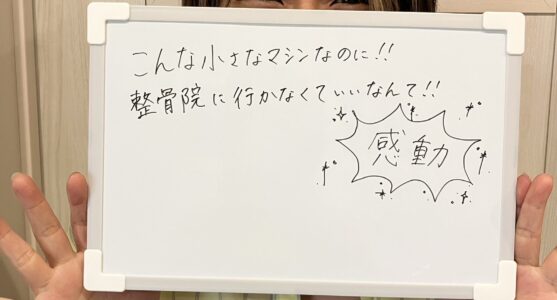 こんな小さなマシンなのに!!
整骨院に行かなくていいなんて!!
感動